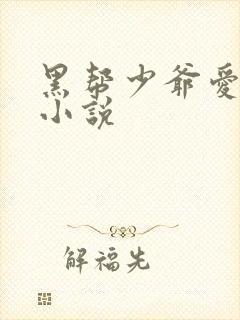 黑帮少爷愛
小説
解福先